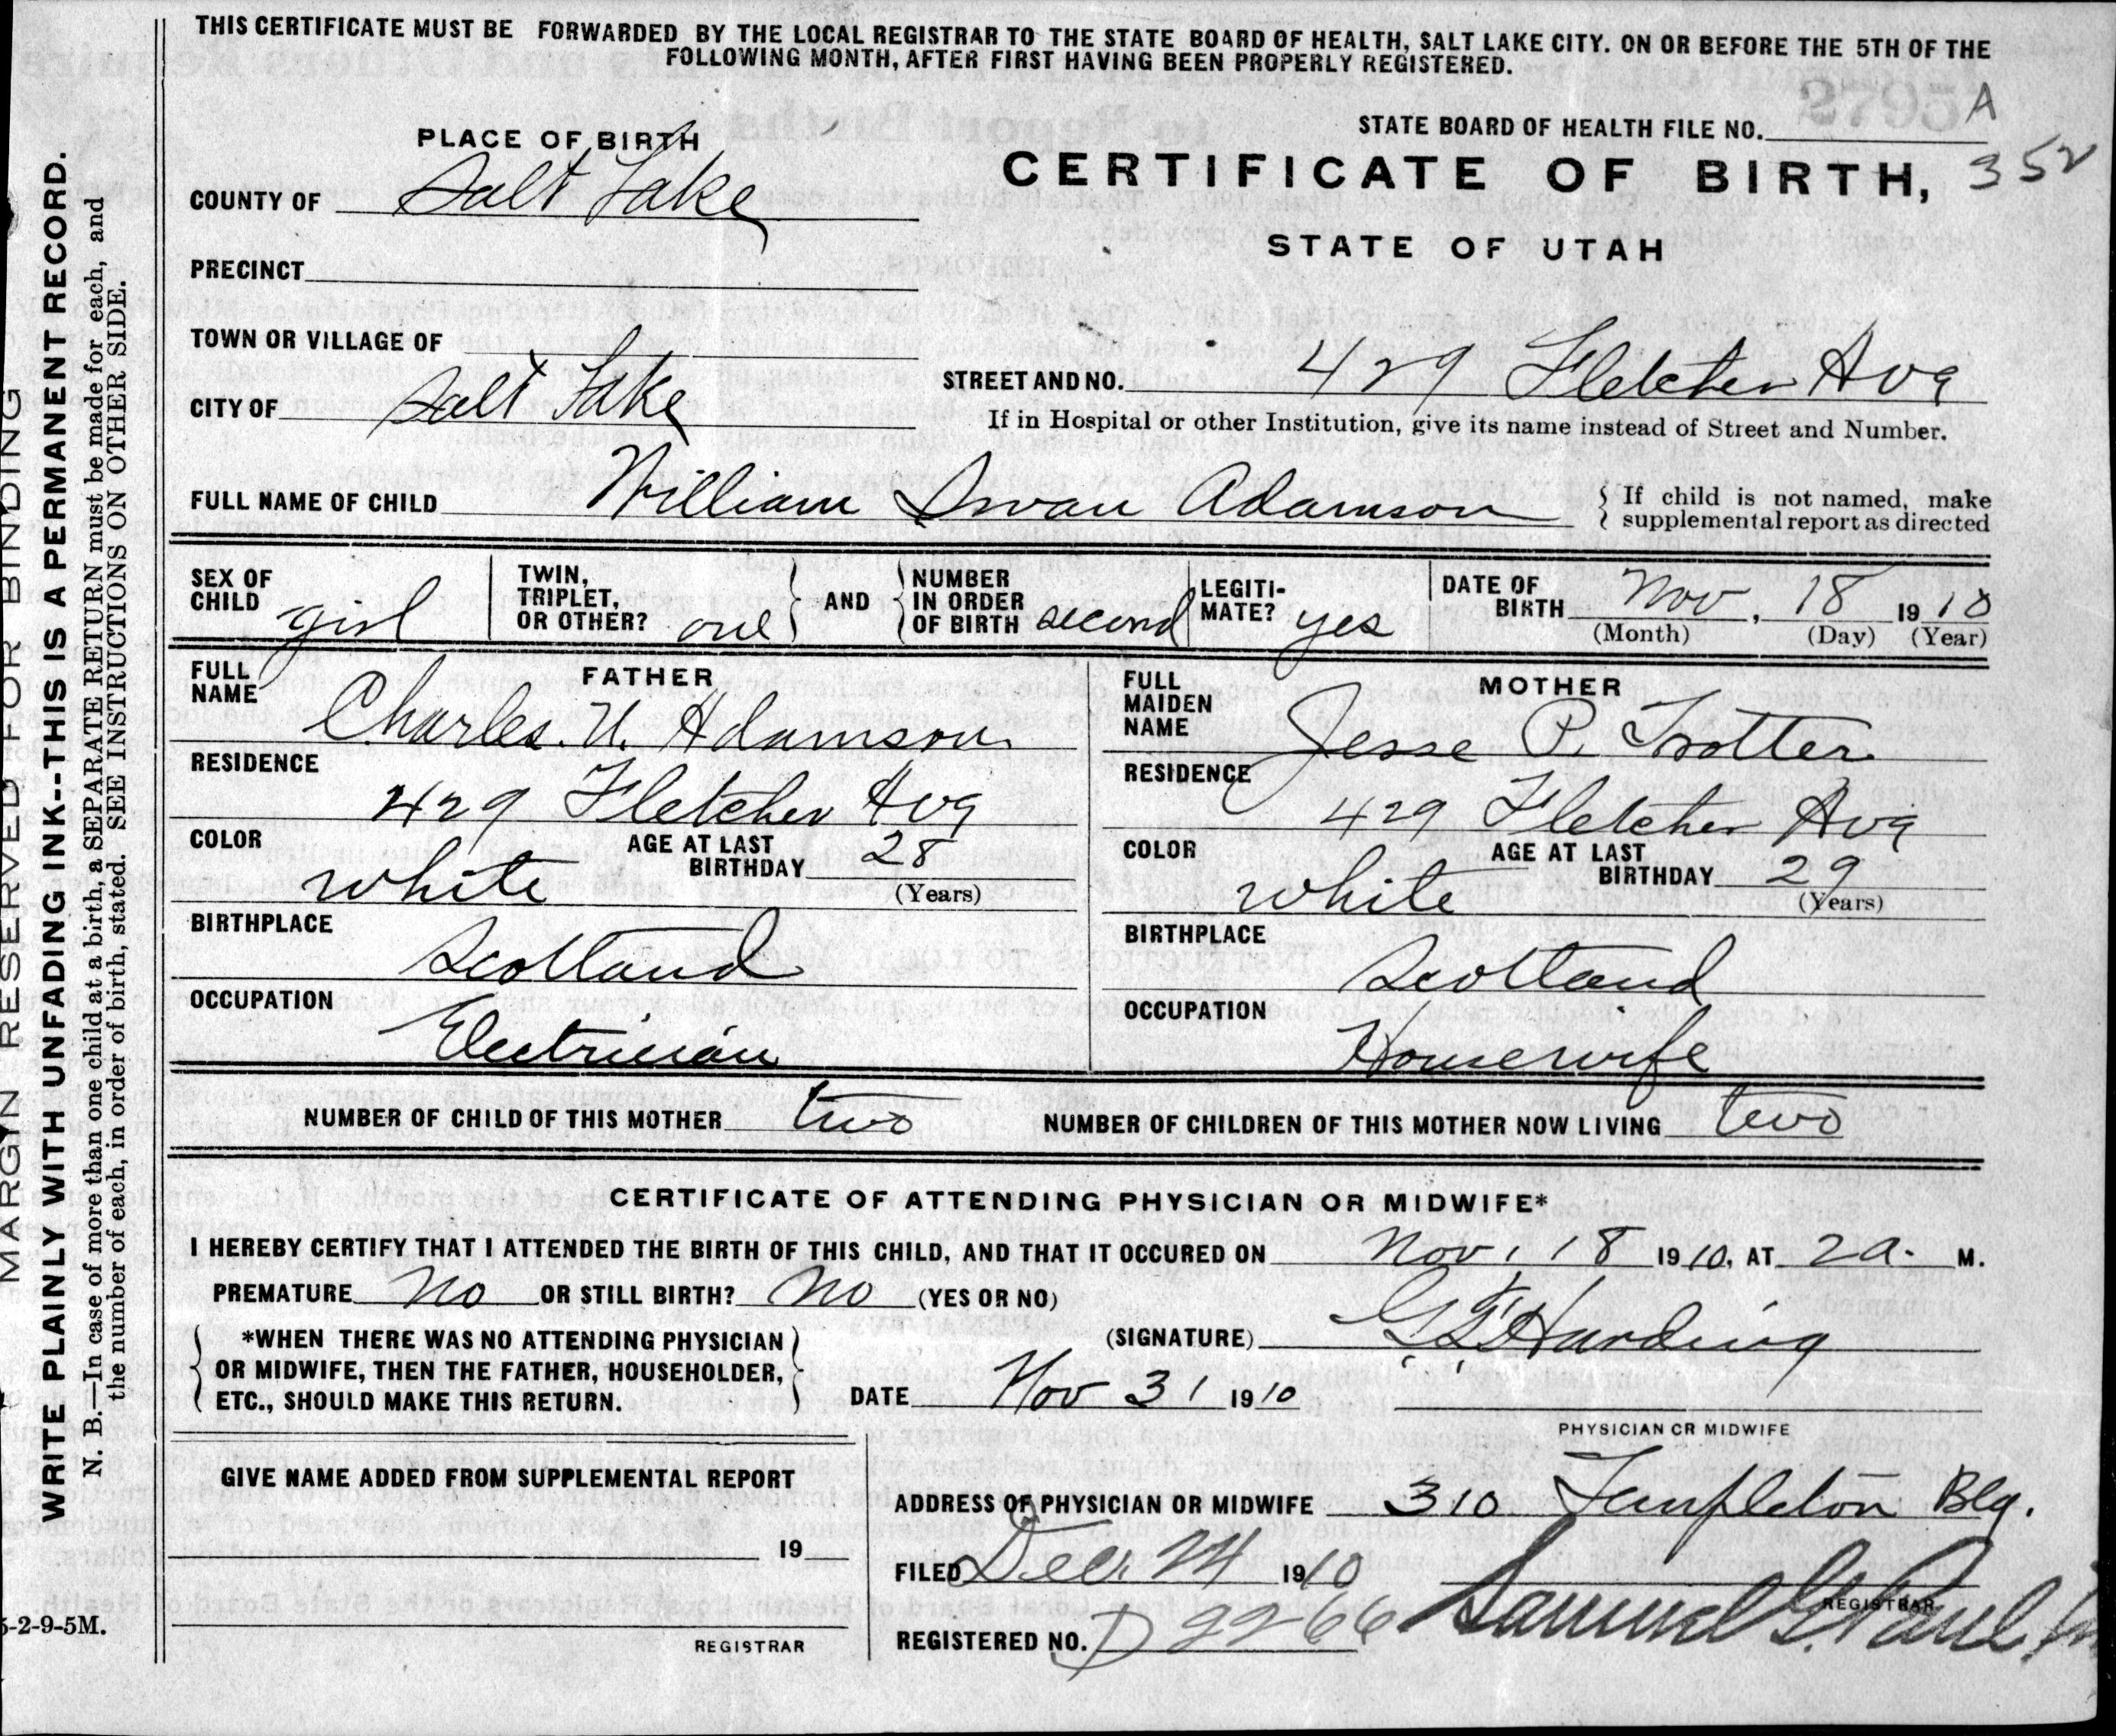 THIS CERTIFICATE MUST BE FORWARDED BY THE LOCAL REGISTRAR TO THE STATE BOARD OF HEALTH, SALT LAKE CITY. ON OR BEFORE THE 5TH OF THE
FOLLOWING MONTH, AFTER FIRST HAVING BEEN PROPERLY REGISTERED.
STATE BOARD OF HEALTH FILE NO. 2795 A
352
PLACE OF BIRTH
CERTIFICATE OF BIRTH,
STATE OF UTAH
COUNTY OF Salt Lake
PRECINCT
TOWN OR VILLAGE OF
CITY OF Salt Lake
STREET AND NO. 429 Fletcher Ave
If in Hospital or other Institution, give its name instead of Street and Number.
FULL NAME OF CHILD William Swan Adamson
If child is not named, make
supplemental report as directed
SEX OF CHILD girl
TWIN, TRIPLET, OR OTHER? one
AND
NUMBER IN ORDER OF BIRTH second
LEGITI-MATE? yes
DATE OF BIRTH Nov, 18 1910
(Month) (Day) (Year)
FATHER
FULL NAME Charles. U. Adamson
RESIDENCE
429 Fletcher Ave
COLOR white
AGE AT LAST BIRTHDAY 28
(Years)
BIRTHPLACE
Scotland
OCCUPATION
Electrician
MOTHER
FULL MAIDEN NAME Jesse P. Trotter
RESIDENCE
429 Fletcher Ave
COLOR white
AGE AT LAST BIRTHDAY 29
(Years)
BIRTHPLACE
Scotland
OCCUPATION
Housewife
NUMBER OF CHILD OF THIS MOTHER two
NUMBER OF CHILDREN OF THIS MOTHER NOW LIVING two
CERTIFICATE OF ATTENDING PHYSICIAN OR MIDWIFE*
I HEREBY CERTIFY THAT I ATTENDED THE BIRTH OF THIS CHILD, AND THAT IT OCCURED ON Nov, 18 1910, AT 2a. M.
PREMATURE No OR STILL BIRTH? No (YES OR NO)
*WHEN THERE WAS NO ATTENDING PHYSICIAN
OR MIDWIFE, THEN THE FATHER, HOUSEHOLDER,
ETC., SHOULD MAKE THIS RETURN.
(SIGNATURE) Harding
DATE Nov 31 1910
PHYSICIAN OR MIDWIFE
GIVE NAME ADDED FROM SUPPLEMENTAL REPORT
19
REGISTRAR
ADDRESS OF PHYSICIAN OR MIDWIFE 310 Templeton Blg.
FILED Dec. 24 1910
REGISTERED NO. D 2266
Samuel G. Paul
REGISTRAR
MARGIN RESERVED FOR BINDING
WRITE PLAINLY WITH UNFADING INK--THIS IS A PERMANENT RECORD.
N. B.—In case of more than one child at a birth, a SEPARATE RETURN must be made for each, and
the number of each, in order of birth, stated. SEE INSTRUCTIONS ON OTHER SIDE.
5-2-9-5M.